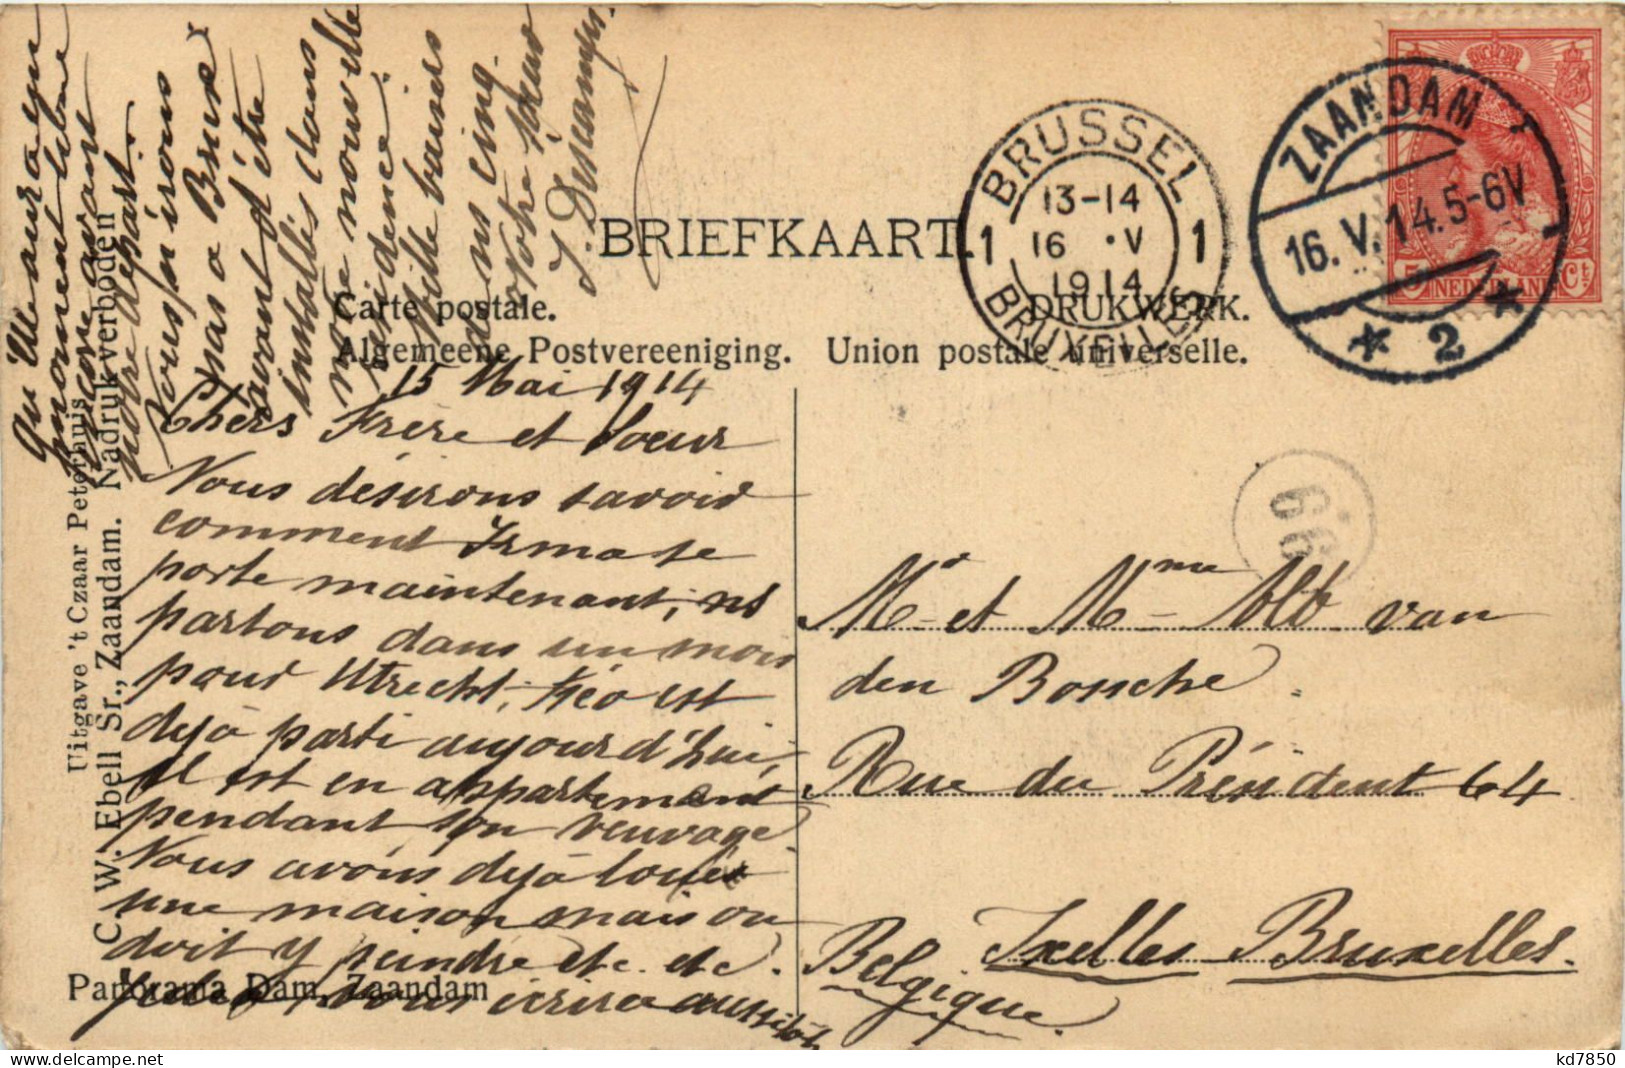 BRIEFKAART.
Carte postale.
DRUKWERK.
Algemeene Postvereeniging. Union postale universelle.
BRUSSEL
1 13-14 1
16 · V
1914
BRUXELLES
ZAANDAM
16. V. 14. 5-6V
* 2 *
5 NEDERLAND Ct
66
15 Mai 1914
Chers Frère et Soeur
Nous désirons savoir
comment Irma se
porte maintenant; ns
partons dans un mois
pour Utrecht,
est
déjà parti aujourd'hui,
il est en appartement
pendant son veuvage
Nous avons déjà loué
une maison mais on
doit y peindre etc. etc.
vous écrira aussitôt
qu'elle aura un
moment libre
encore avant
notre départ.
Nous n'irons
pas a Brux
avant d'être
installés dans
notre nouvelle
résidence.
Mille baisers
de ns cinq.
Votre soeur
J. Descamps.
Mr et Mme Alb van
den Bossche.
Rue du Président 64
Ixelles Bruxelles.
Belgique.
Uitgave 't Czaar Peterhuis
C. W. Ebell Sr., Zaandam. Nadruk verboden
Panorama Dam, Zaandam
kd7850